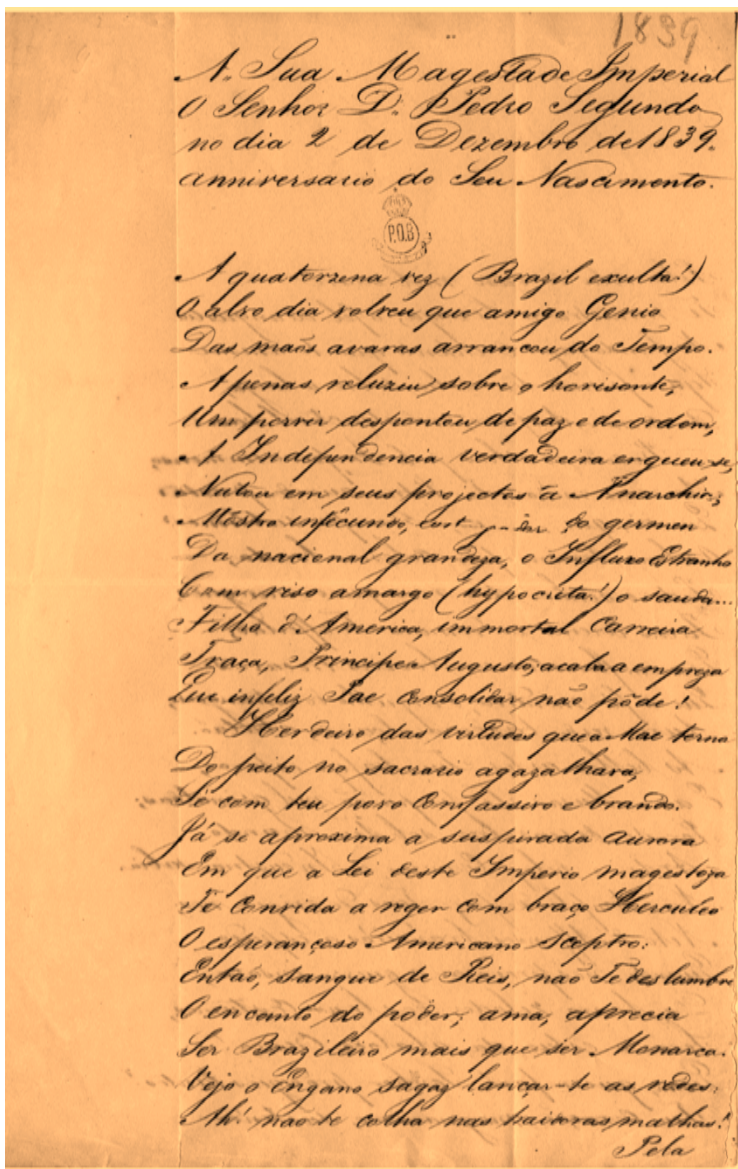 1839
A. Sua Magestade Imperial
O Senhor D. Pedro Segundo
no dia 2 de Dezembro de 1839.
anniversario do Seu Nascimento.
P.O.B
A quatorzena vez (Brazil exulta!)
O alvo dia volveu que amigo Genio
Das maõs avaras arrancou do Tempo.
Apenas reluziu sobre o horisonte,
Um porvir despontou de paz e de ordem,
A Independencia verdadeira ergueu-se,
Nutou em seus projectos a Anarchia;
Mostro infecundo, do germen
Da nacional grandeza, o Influxo Estranho
Com riso amargo (hypocrita!) o sauda...
Filho d'America, immortal Carreira
Traça, Principe Augusto; acaba a empreza
Que infeliz Pae Consolidar não pôde!
Herdeiro das virtudes que a Mae terna
Do peito no sacrario agazalhara,
Sê com teu povo Compassivo e brando.
Já se aproxima a suspirada aurora
Em que a Lei deste Imperio magestoza
Te Convida a reger com braço Herculeo
O esperançoso Americano Sceptro:
Então, sangue de Reis, não Te deslumbre
O encanto do poder; ama, aprecia
Ser Brazileiro mais que ser Monarca.
Vejo o Engano sagaz lançar-te as redes:
Ah! nao te colha nas traidoras malhas!
Pela